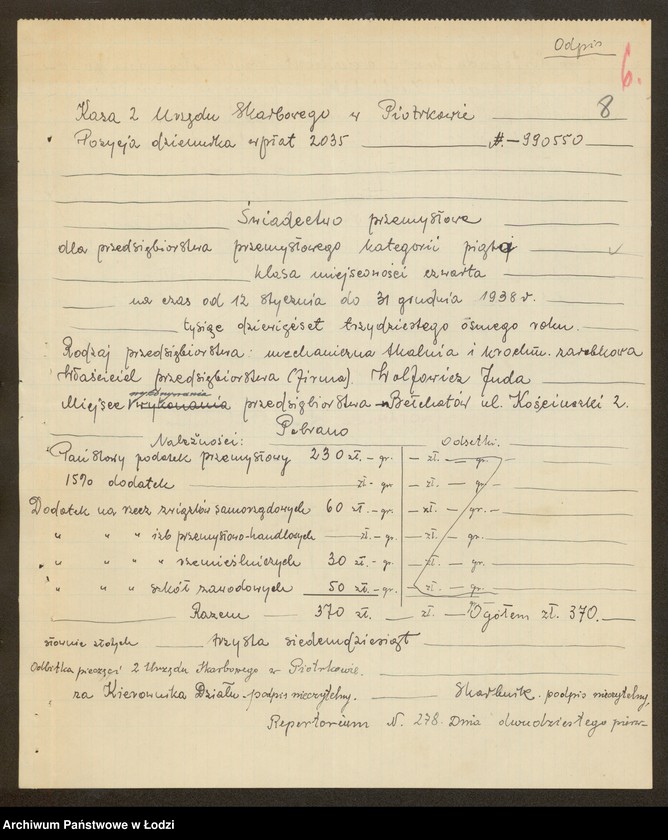 Odpis
6.
8
Kasa 2 Urzędu Skarbowego w Piotrkowie
Pozycja dziennika wpłat 2035 #.-990550
Świadectwo przemysłowe
dla przedsiębiorstwa przemysłowego kategorii piątej
klasa miejscowości czwarta
na czas od 12 stycznia do 31 grudnia 1938 r.
tysiąc dziewięćset trzydziestego ósmego roku.
Rodzaj przedsiębiorstwa: mechaniczna tkalnia i krochm. zarobkowa
Właściciel przedsiębiorstwa (firma). Wolfowicz Juda
Miejsce wykonania przedsiębiorstwa - Bełchatów ul. Kościuszki 2.
Pobrano
Należności: Odsetki:
Państwowy podatek przemysłowy 230 zł. - gr. - zł. - gr.
15% dodatek zł. - gr. - zł. - gr.
Dodatek na rzecz związków samorządowych 60 zł. - gr. - zł. - gr.
" " " izb przemysłowo-handlowych zł. - gr. - zł. - gr.
" " " " rzemieślniczych 30 zł. - gr. - zł. - gr.
" " " szkół zawodowych 50 zł. - gr. - zł. - gr.
Razem 370 zł. zł. - Ogółem zł. 370.
słownie złotych trzysta siedemdziesiąt
Odbitka pieczęci 2 Urzędu Skarbowego w Piotrkowie.
za Kierownika Działu - podpis nieczytelny. Skarbnik - podpis nieczytelny,
Repertorium N. 278. Dnia dwudziestego pierw-
Archiwum Państwowe w Łodzi